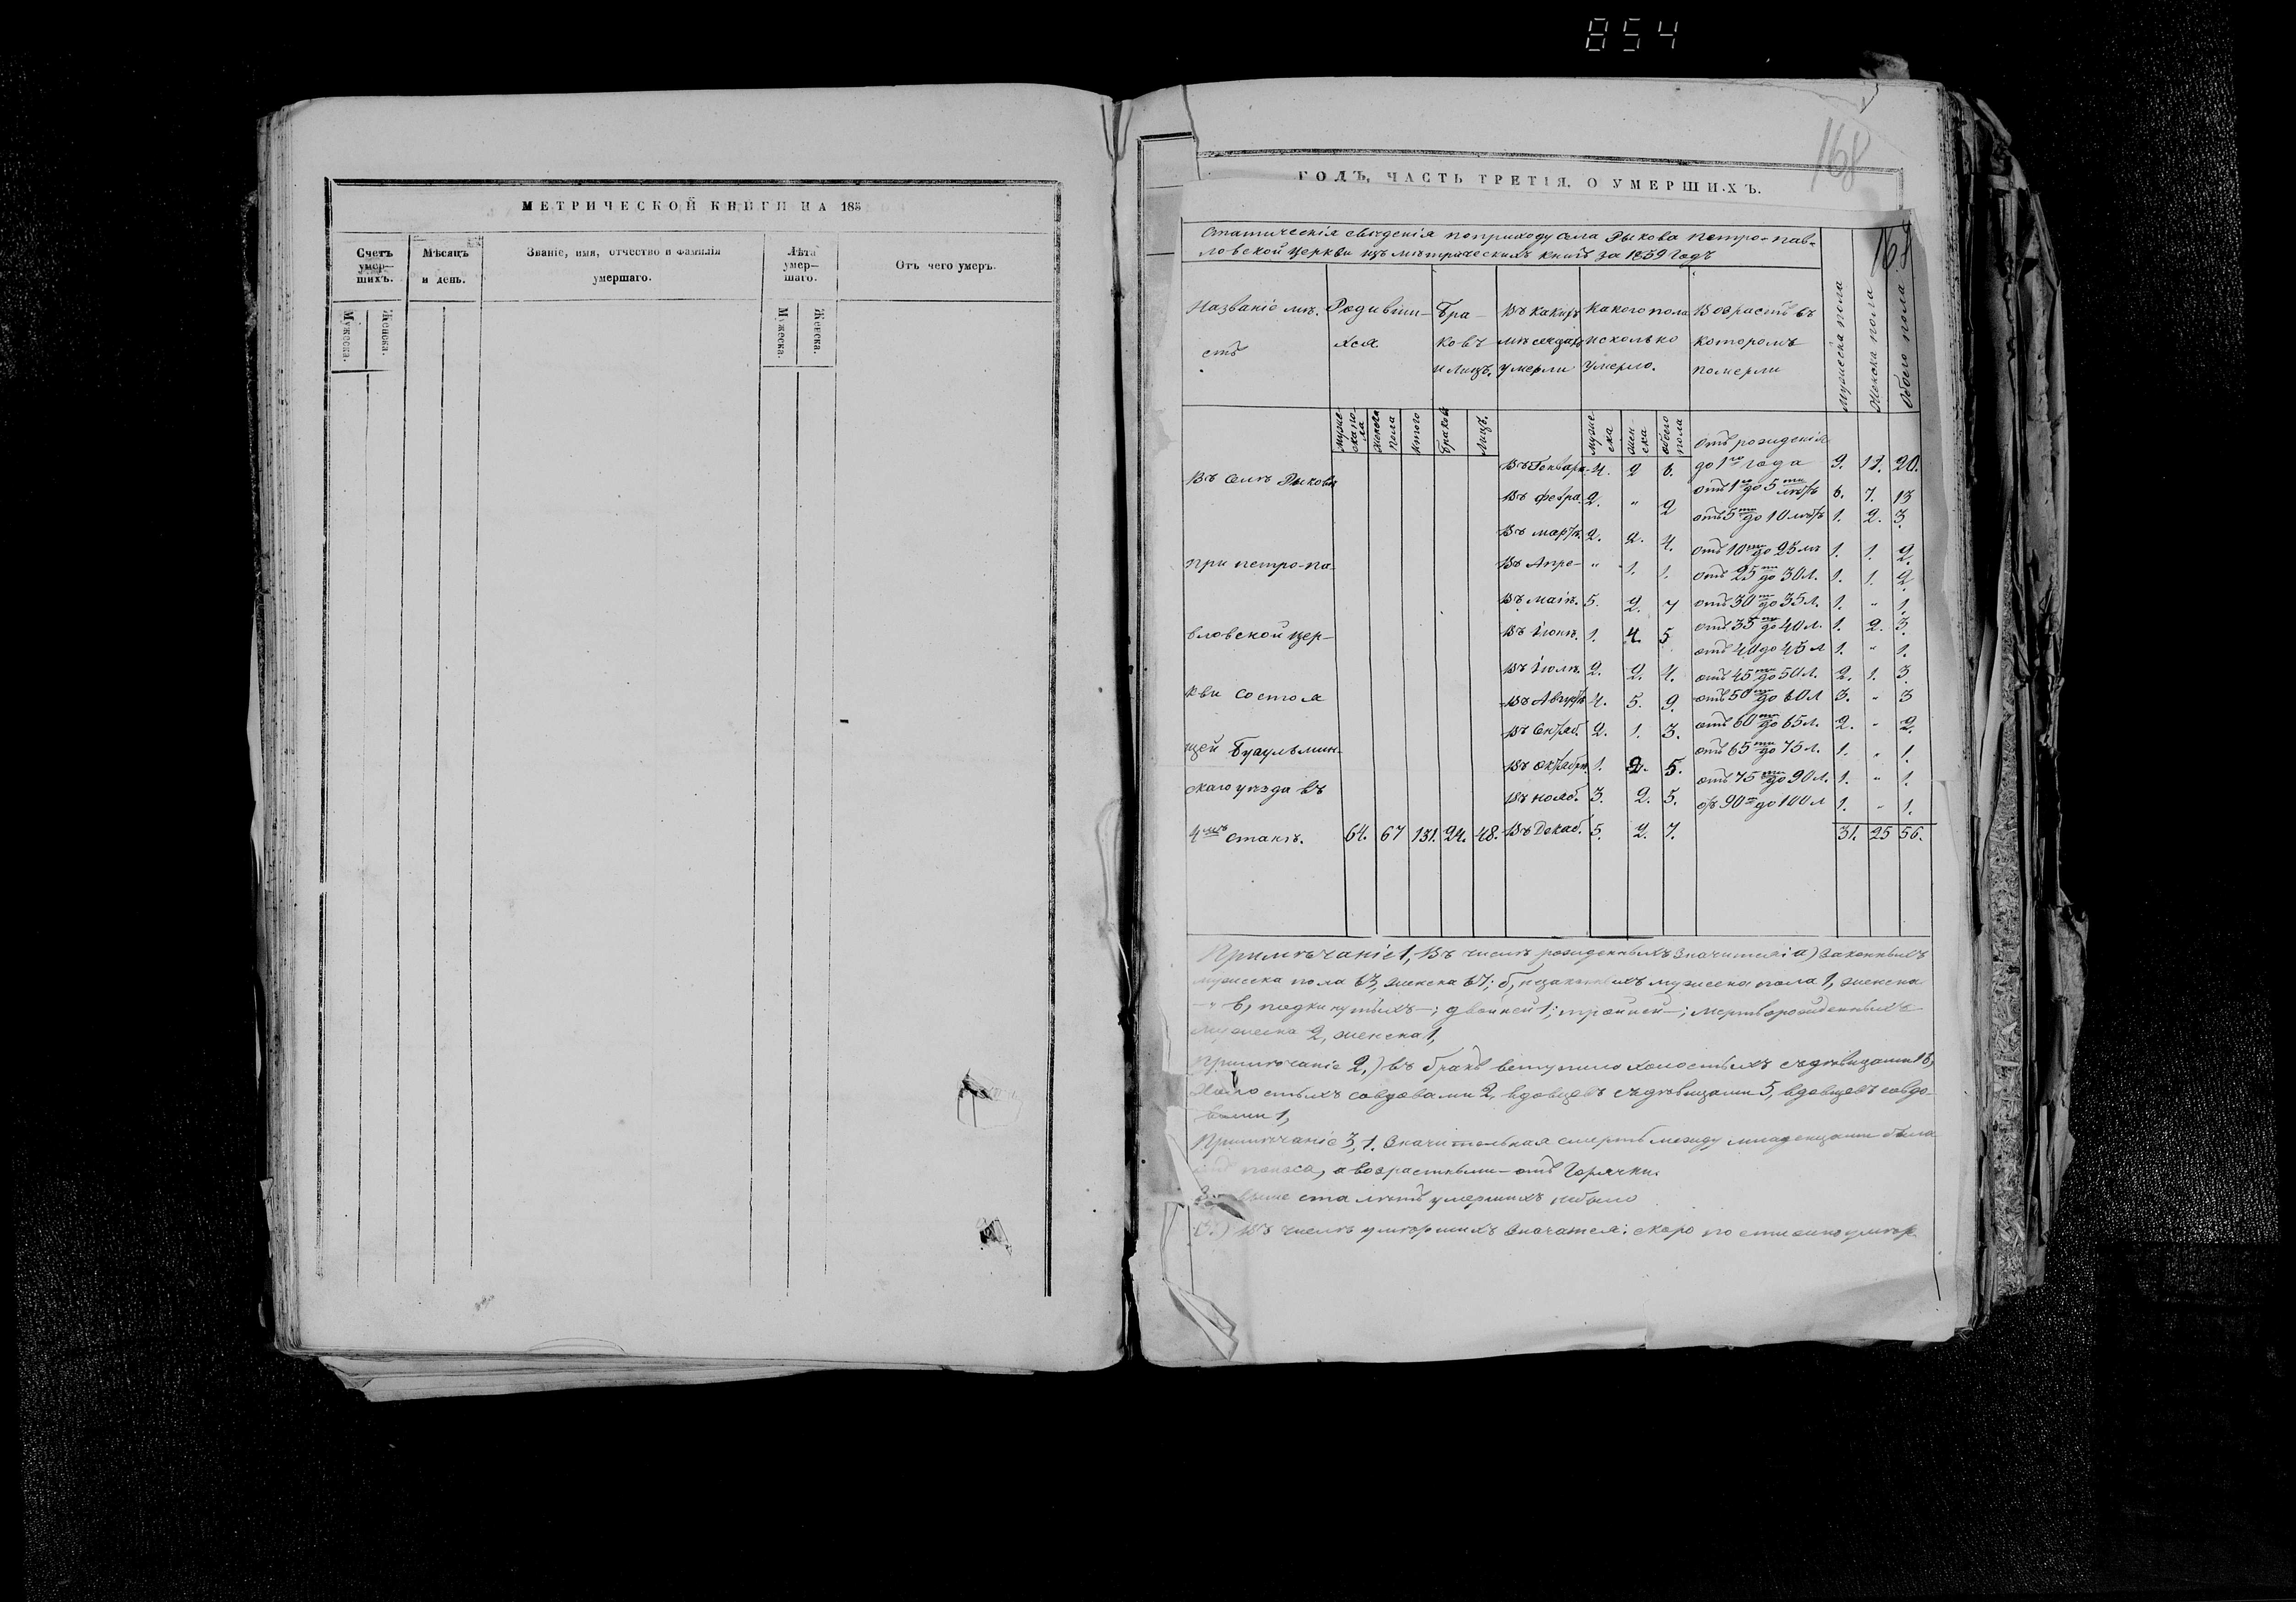 854
МЕТРИЧЕСКОЙ КНИГИ НА 185
Счетъ умер-шихъ.
Мужеска.
Женска.
Мѣсяцъ и день.
Званіе, имя, отчество и фамилія умершаго.
Лѣта умер-шаго.
Мужеска.
Женска.
Отъ чего умеръ.
168
ГОДЪ, ЧАСТЬ ТРЕТІЯ, О УМЕРШИХЪ.
168
Статическія свѣденія поприходу села Рыкова Петро-пав-
ловской церкви изъ метрическихъ книгъ за 1859 годъ
Названіе мѣ-стъ
Родивши-хся
Бра-ковъ и лицъ.
Въ какихъ мѣсяцахъ умерли
Какого пола и сколько умерло.
Возрастъ въ которомъ померли
Мужеска пола
Женска пола
Обоего пола
муже-ска по-ла
женска пола
итого
Браковъ
Лицъ.
муже-ска
жен-ска
обоего пола
Въ селѣ Рыковѣ
при петро-па-
вловской цер-
кви состоя
щей Бугульмин-
скаго уѣзда въ
4мъ станѣ. 64. 67 131. 24. 48.
Въ Генваре 4. 2 6.
Въ Февра. 2. " 2
Въ мартѣ. 2. 2. 4.
Въ Апре- " 1. 1.
Въ маіѣ. 5. 2. 7
Въ Іюнѣ. 1. 4. 5
Въ Іюлѣ. 2. 2. 4.
Въ Августѣ 4. 5. 9.
Въ Сентяб. 2. 1. 3.
Въ октябрѣ. 1. 2. 5.
Въ нояб. 3. 2. 5.
Въ Декаб. 5. 2. 7.
отъ рожденія
до 1го года 9. 11. 20.
отъ 1го до 5ти лѣтъ 6. 7. 13
отъ 5ти до 10 лѣтъ 1. 2. 3.
отъ 10ти до 25 лѣ 1. 1. 2.
отъ 25ти до 30 л. 1. 1. 2
отъ 30ти до 35 л. 1. " 1.
отъ 35ти до 40 л. 1. 2. 3.
отъ 40 до 45 л 1. " 1.
отъ 45ти до 50 л. 2. 1. 3.
отъ 50ти до 60 л 3. " 3
отъ 60ти до 65 л. 2. " 2.
отъ 65ти до 75 л. 1. " 1.
отъ 75ти до 90 л. 1. " 1.
отъ 90 до 100 л 1. " 1.
31. 25 56.
Примѣчаніе 1, Въ числѣ рожденныхъ значится: а) законныхъ
мужеска пола 63, женска 67; б, незаконныхъ мужеска пола 1, женска
- " в, подкинутыхъ -; двойней 1; тройней -; мертворожденныхъ
мужеска 2, женска 1,
Примѣчаніе 2,) въ бракъ вступило холостыхъ съ дѣвицами 16,
Холостыхъ совдовами 2, вдовцевъ съ дѣвицами 5, вдовцевъ совдо-
вами 1,
Примѣчаніе 3, 1. Значительная смерть между младенцами была
отъ поноса, а возрастными - отъ Горячки.
выше ста лѣтъ умершихъ небыло
Въ числѣ умершихъ значатся: скоропостижно умер-